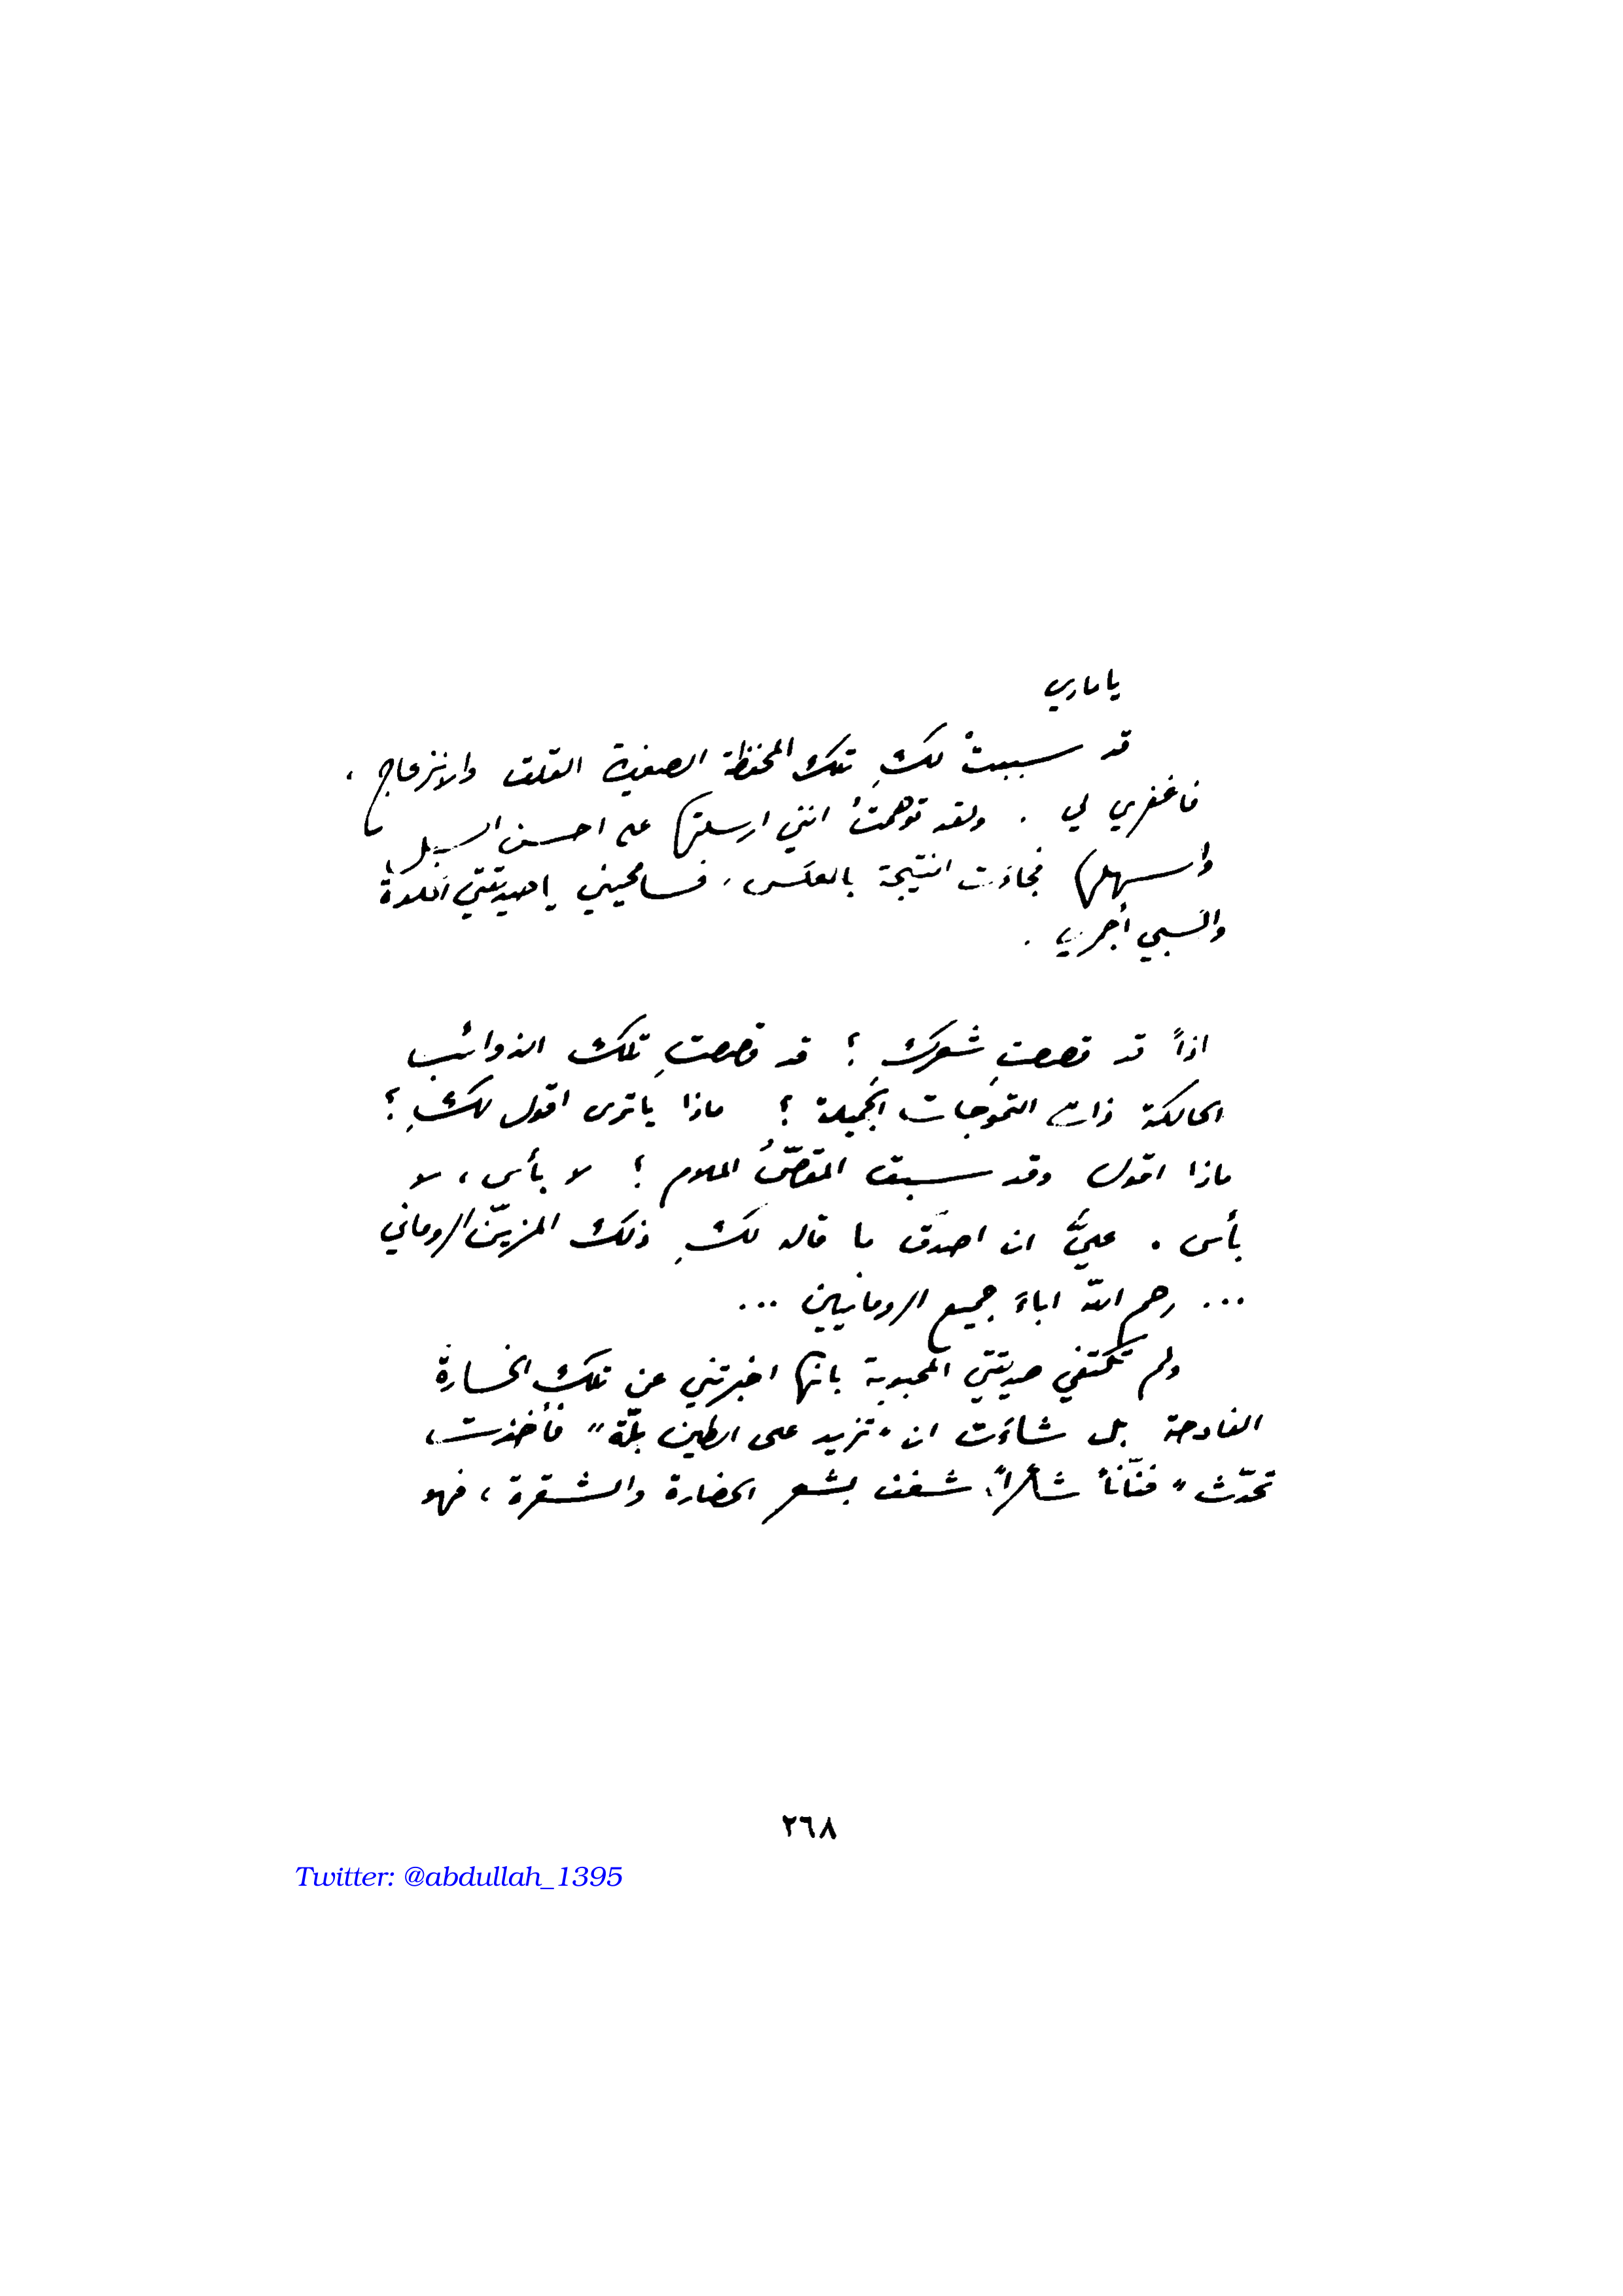 يا ماري
قد سببتْ لكِ تلك المحفظة الصغيرة القلق والانزعاج ،
فاغفري لي . ولقد توهمتُ انني ارسلتها على احسن السبل
وأسهلها فجاءَت النتيجة بالعكس ، فسامحيني يا صديقتي الحلوة
واكسبي أجري .
اذاً قد قصصتِ شعركِ ؟ قد قصصتِ تلك الذوائب
الحالكة ذات التموّجات الجميلة ؟ ماذا يا ترى اقول لكِ ؟
ماذا اقول وقد سبق المقصّ الملام ؟ لا بأس ، لا
بأس . عليَّ ان اصدّق ما قاله لكِ ذلك المزيّن الروماني
... رحم اللّه اباءَ جميع الرومانيين ...
ولم تكتفي صديقتي المحبوبة بانها اخبرتني عن تلك الخسارة
الفادحة بل شاءَت ان "تزيد على الطين بلّة" فأخذت
تحدّث "فنّاناً شاعراً، شغف بشعر الحضارة والشقرة ، فهو
٢٦٨
Twitter: @abdullah_1395